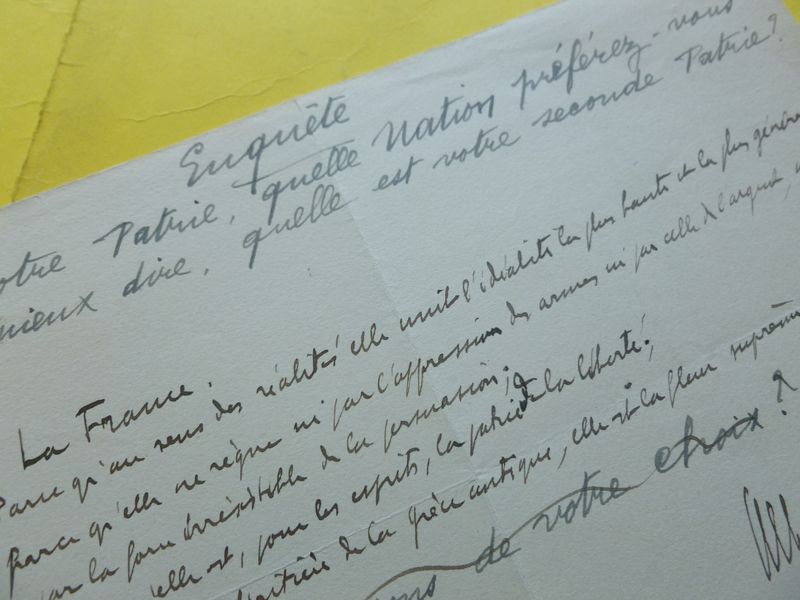 Enquête
otre Patrie, quelle Nation préférez-vous
mieux dire, quelle est votre seconde Patrie?
La France.
Parce qu'au sens des réalités elle unit l'idéalité la plus haute et la plus génére
Parce qu'elle ne règne ni par l'oppression des armes ni par celle de l'argent,
par la force irrésistible de la persuasion;
elle est, pour les esprits, la patrie de la liberté;
héritière de la Grèce antique, elle est la fleur suprême
ons de votre choix?